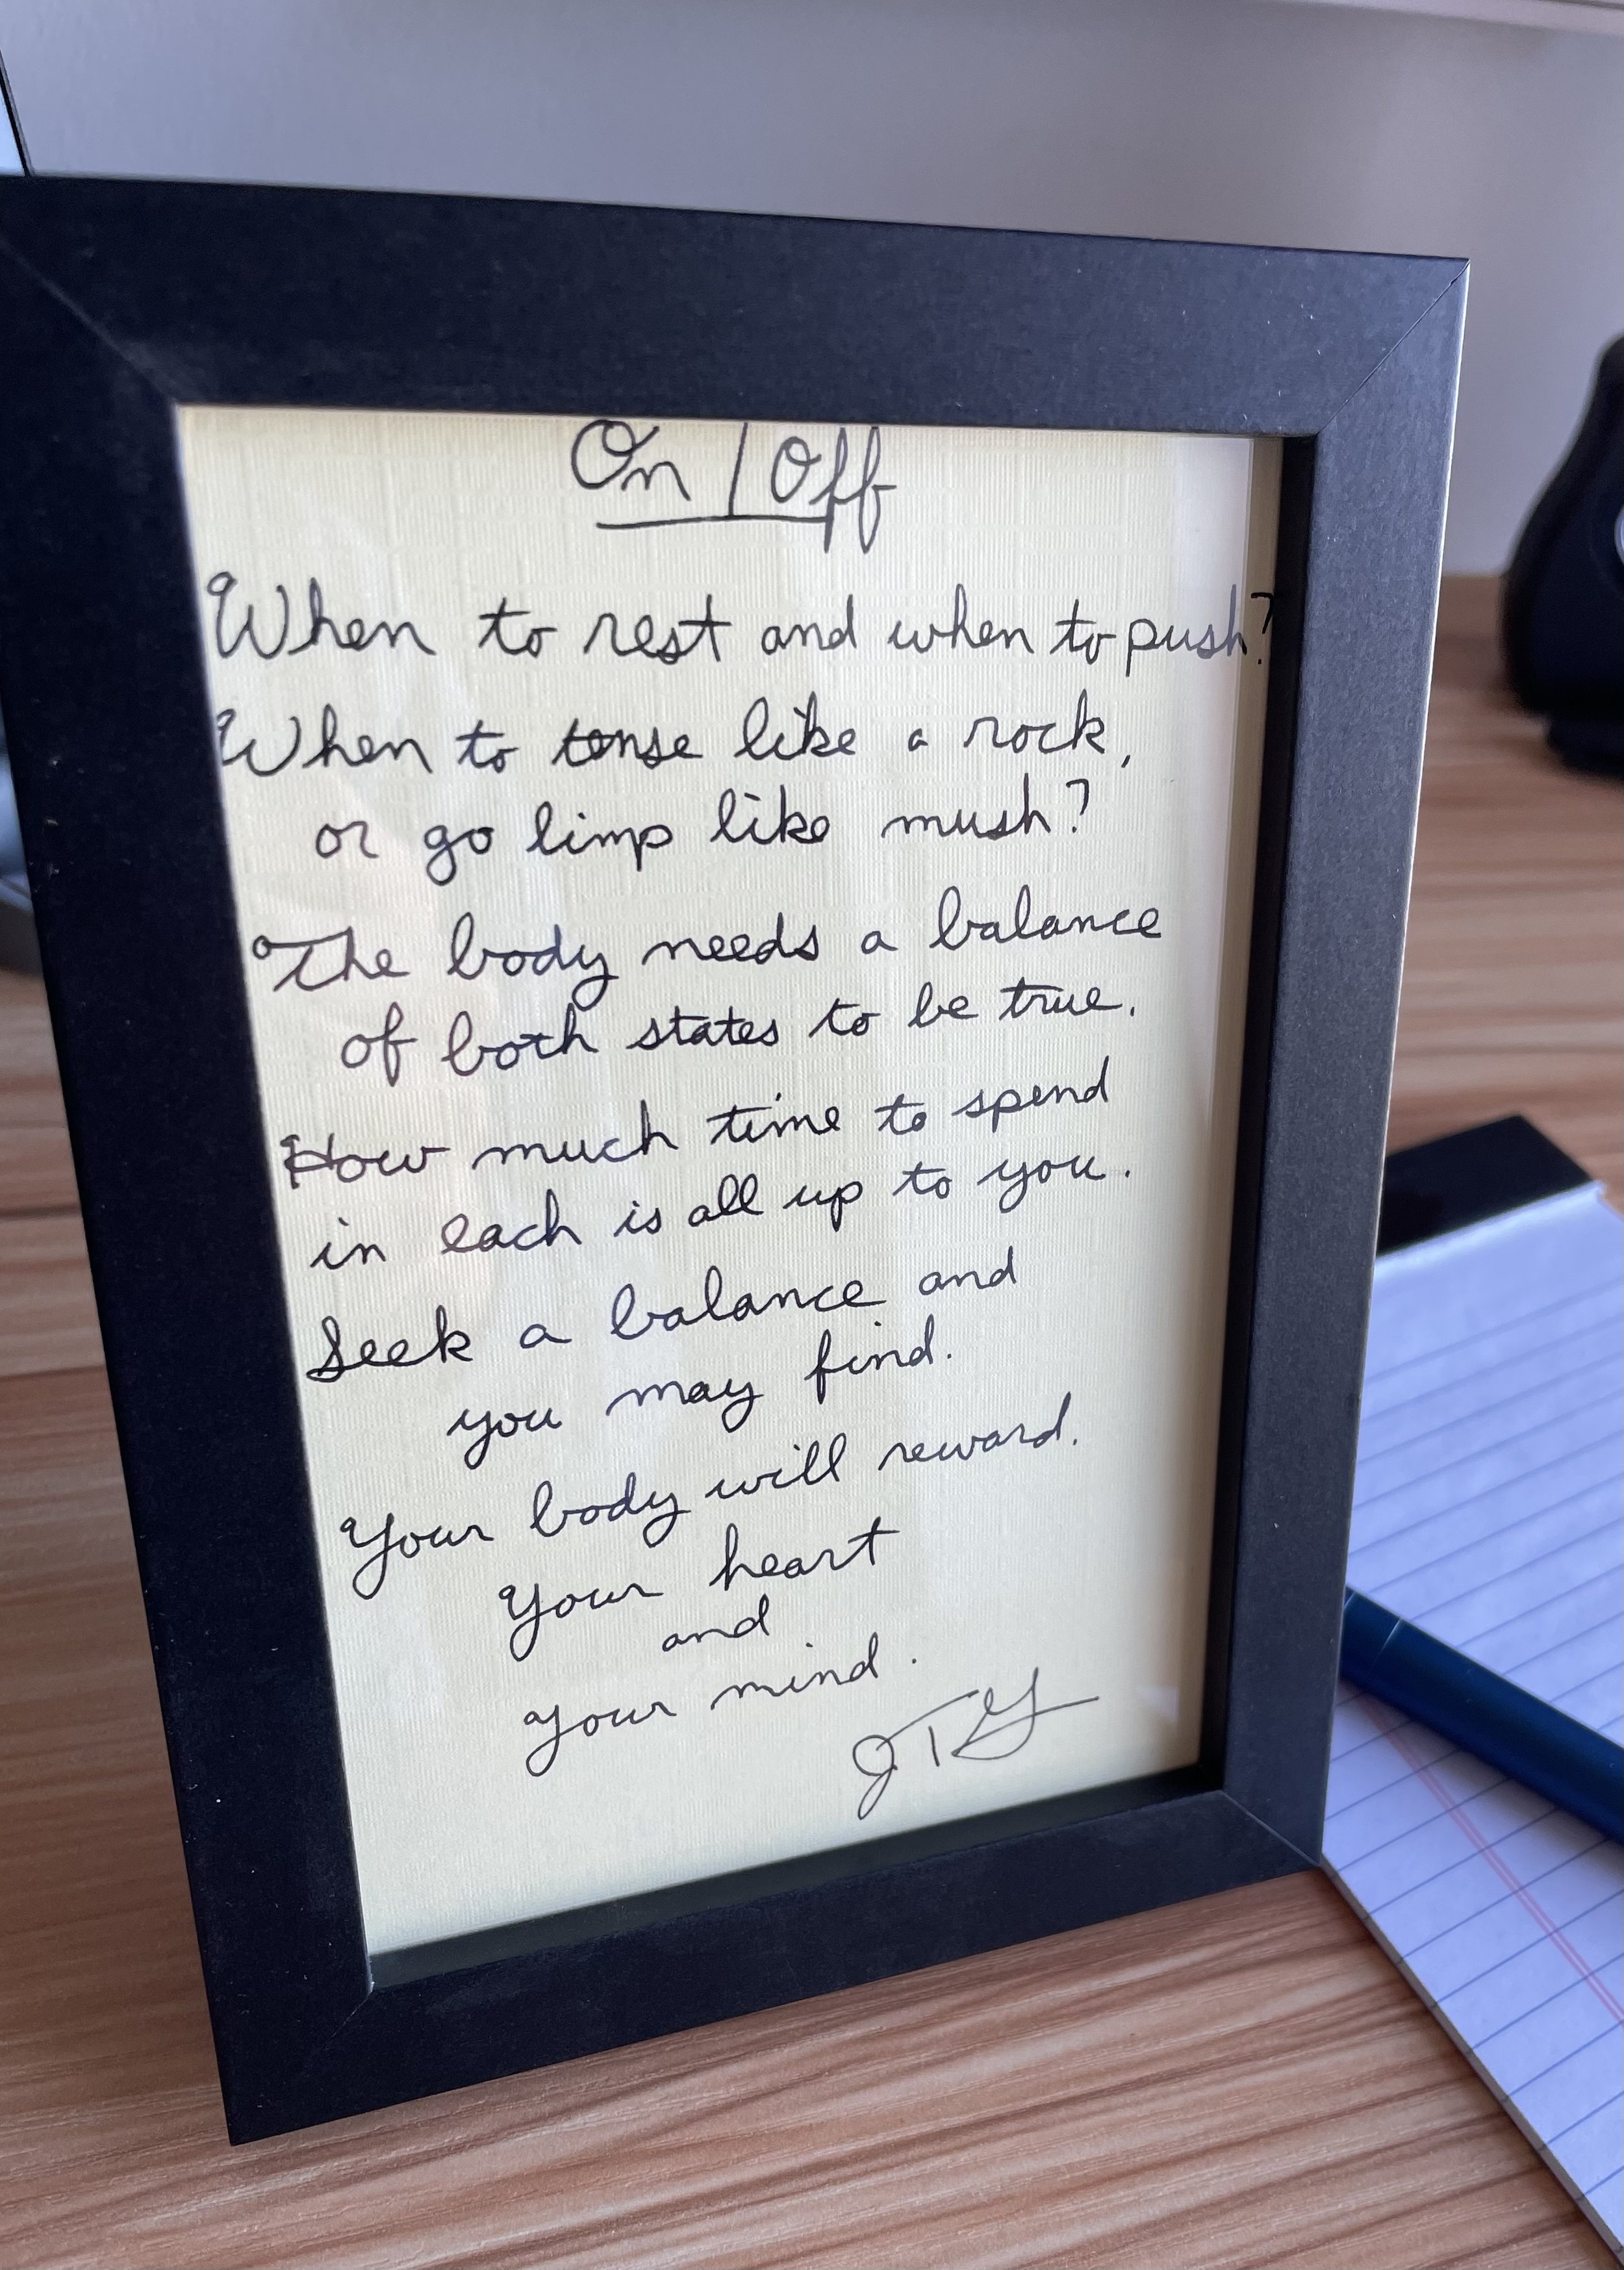 On / Off
When to rest and when to push?
When to tense like a rock,
or go limp like mush?
The body needs a balance
of both states to be true.
How much time to spend
in each is all up to you.
Seek a balance and
you may find.
Your body will reward.
Your heart
and
your mind.
JTG